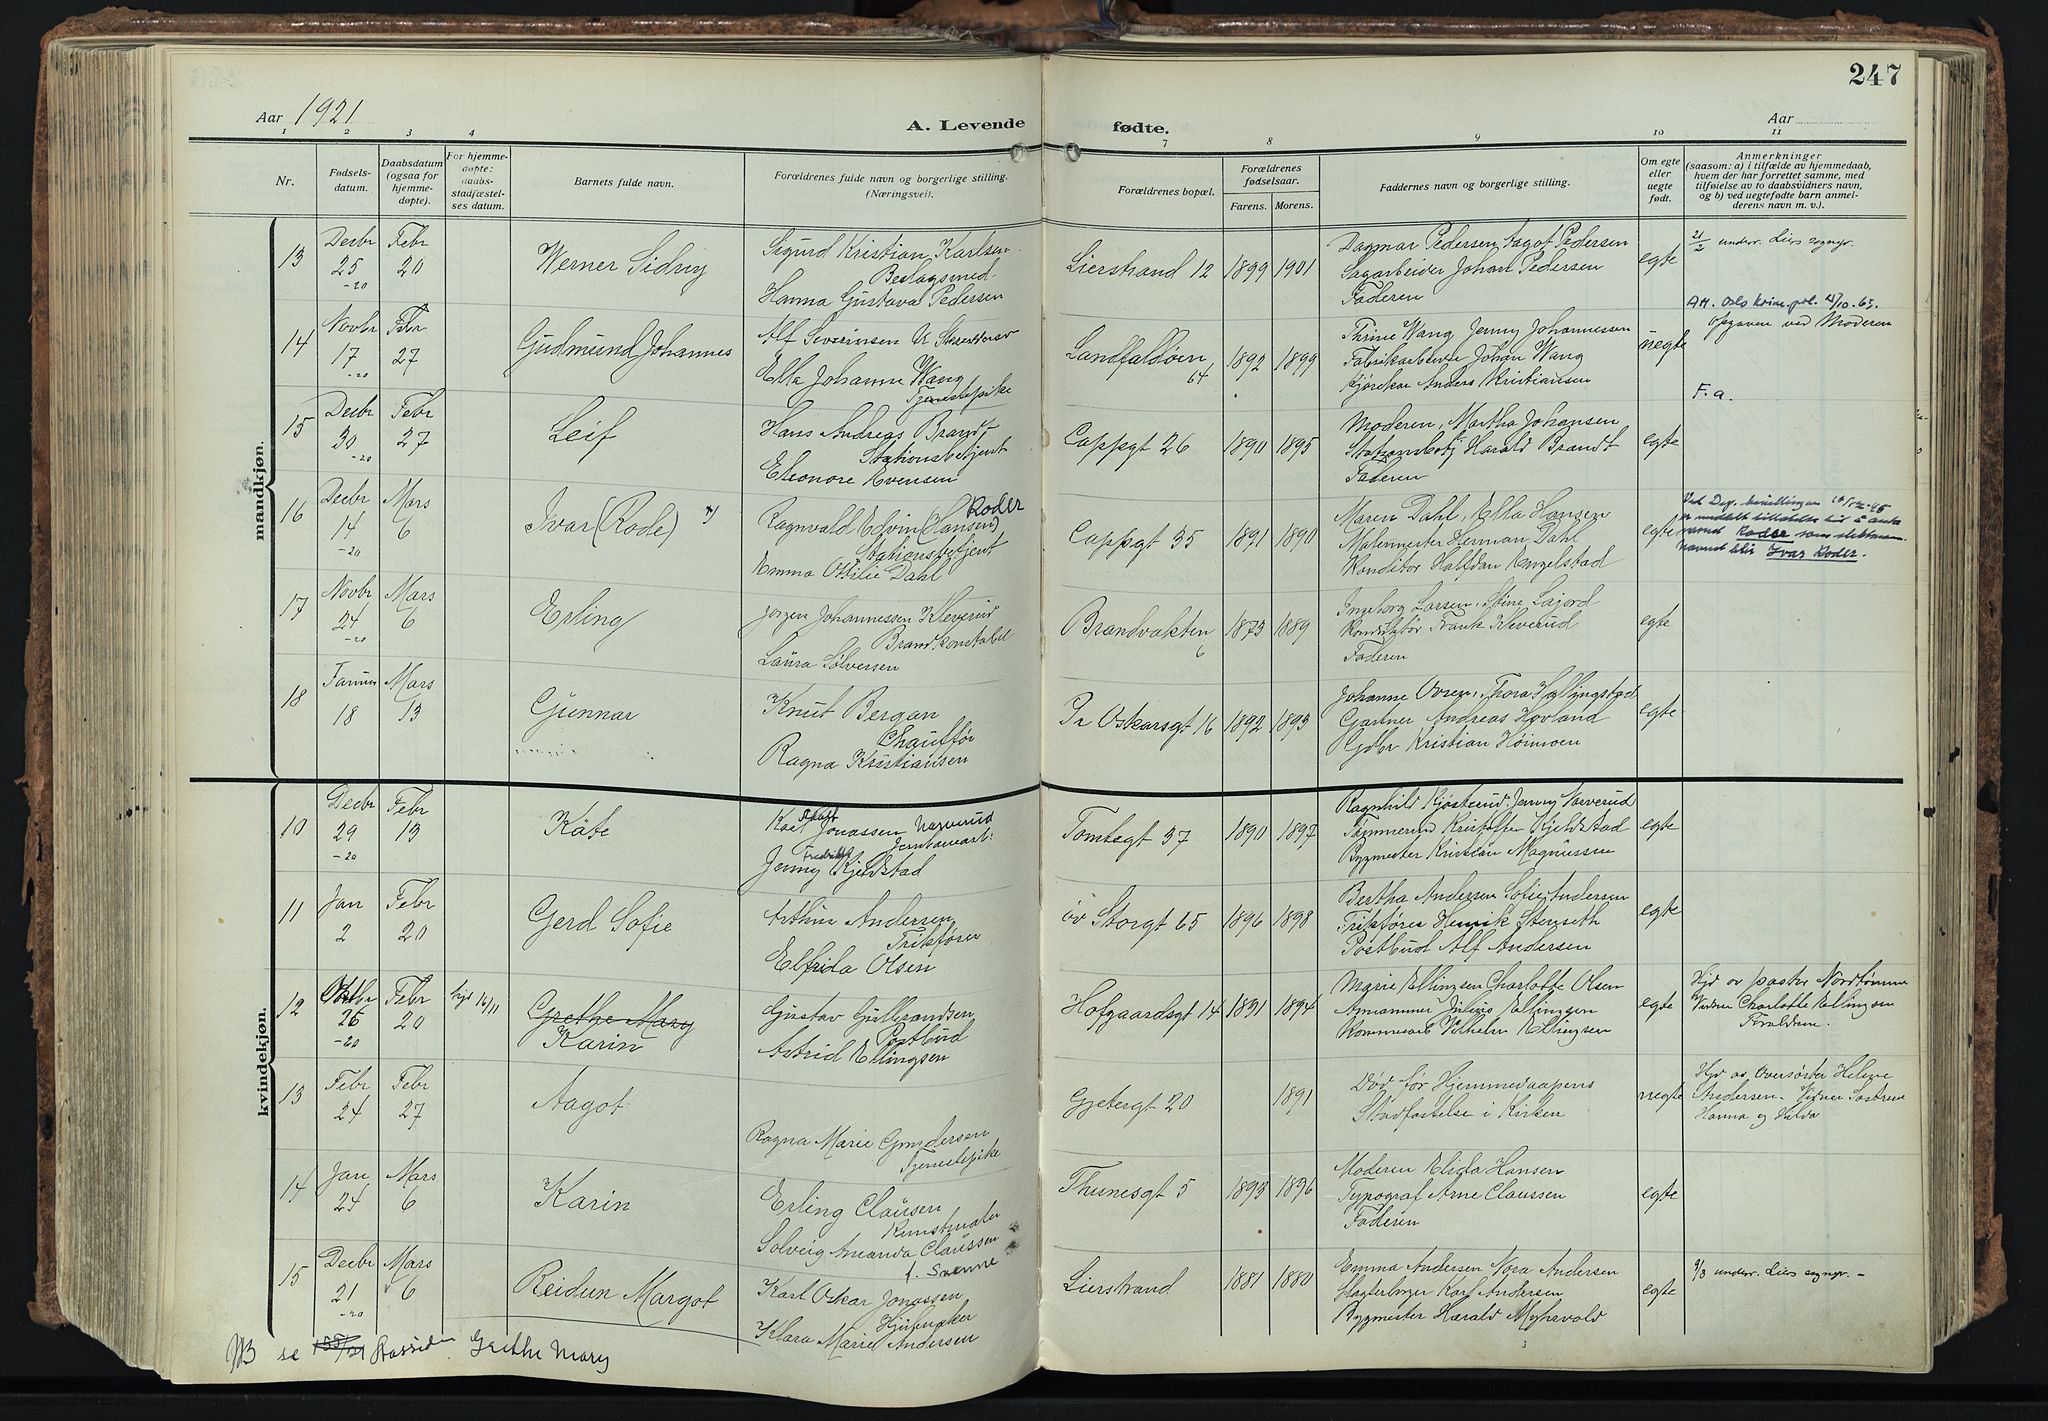 247
Aar 1921
A. Levende fødte.
Aar
1 2 3 4 7 8 9 10 11
Nr.
Fødsels-
datum.
Daabsdatum
(ogsaa for
hjemme-
døpte).
For hjemme-
døpte:
daabs-
stadfæstel-
ses datum.
Barnets fulde navn.
Forældrenes fulde navn og borgerlige stilling.
(Næringsvei).
Forældrenes bopæl.
Forældrenes
fødselsaar.
Farens. Morens.
Faddernes navn og borgerlige stilling.
Om egte
eller
uegte
født.
Anmerkninger
(saasom: a) i tilfælde av hjemmedaab,
hvem der har forrettet samme, med
tilføielse av to daabsvidners navn,
og b) ved uegtefødte barn anmel-
derens navn m. v.).
mandkjøn.
13
Decbr
25
-20
Febr
20
Werner Sidny
Sigurd Kristian Karlsen
Beslagsmed
Hanna Gustava Pedersen
Lierstrand 12
1899
1901
Dagmar Pedersen Aagot Pedersen
Sagarbeider Johan Pedersen
Faderen
egte
21/2 underr. Liers sognepr.
14
Novbr
17
-20
Febr
27
Gudmund Johannes
Alf Severinsen
Ella Johanne Wang
Tjenestepike
Landfaldøen
64
1892
1899
Thrine Wang Jenny Johannessen
Fabrikarbeider Johan Wang
Kjørekar Anders Kristiansen
uegte
Opgaven ved Moderen
F. a.
15
Decbr
30
-20
Febr
27
Leif
Hans Andreas Brandt
Stationsbetjent
Eleonore Evensen
Cappgt 26
1890
1895
Moderen, Martha Johansen
Harald Brandt
Faderen
egte
16
Decbr
14
-20
Mars
6
Ivar (Rode)
Ragnvald Edvin (Hansen) Roder
Stationsbetjent
Emma Ottilie Dahl
Cappgt 35
1891
1890
Maren Dahl, Ella Hansen
Malermester Herman Dahl
Konditor Halfdan Engelstad
egte
Roder som slektsn.
Ivar Roder.
17
Novbr
24
-20
Mars
6
Erling
Jørgen Johannessen Kleverud
Brandkonstabel
Laura Sølversen
Brandvakten
6
1873
1889
Ingeborg Larsen, Stine Lajord
Konduktør Frank Kleverud
Faderen
egte
18
Januar
18
Mars
13
Gunnar
Knut Bergan
Chauffør
Ragna Kristiansen
Pr Oskarsgt 16
1892
1893
Johanne Ovren, Thora Hallingstad
Gartner Andreas Hovland
Gdbr Kristian Høimoen
egte
kvindekjøn.
10
Decbr
29
-20
Febr
13
Käte
Karl Jonassen Narverud
Jernbanearb:
Jenny Fredrikke Kjeldstad
Tomtegt 37
1890
1897
Ragnhild Kjøsterud. Jenny Narverud
Tømmermd Kristoffer Kjeldstad
Bygmester Kristian Magnussen
egte
11
Jan
2
Febr
20
Gerd Sofie
Arthur Andersen
Trikfører
Elfrida Olsen
øv Storgt 65
1896
1898
Bertha Andersen Sofie Andersen
Trikfører Henrik Stenseth
Postbud Alf Andersen
egte
12
Oktbr
26
-20
Febr
20
hjd 16/11
Grethe Mary
Karin
Gustav Gulbrandsen
Postbud
Astrid Ellingsen
Hofgaardsgt 14
1891
1894
Marie Ellingsen Charlotte Olsen
Julius Ellingsen
Vilhelm Ellingsen
egte
Hjd av pastor Nordtømme
Vidner Charlotte Ellingsen
Forældrene.
13
Febr
24
Febr
27
Aagot
Ragna Marie Gundersen
Tjenestepike
Gjetergt 20
1891
Død før Hjemmedaapens
Stadfæstelse i Kirken
uegte
Hjd av Oversøster Helene
Andersen. Vidner Søstrene
Hanna og Hulda
14
Jan
24
Mars
6
Karin
Erling Clausen
Kunstmaler
Solveig Amanda Claussen
f. Svenne
Thunesgt 5
1893
1896
Moderen Elida Hansen
Typograf Arne Claussen
Faderen
egte
15
Decbr
21
-20
Mars
6
Reidun Margot
Karl Oskar Jonassen
Hjulmaker
Klara Marie Andersen
Lierstrand
1881
1880
Emma Andersen Nora Andersen
Slagterborger Karl Andersen
Bygmester Harald Myhrvold
egte
9/3 underr. Liers sognepr. -
NB se 155/21 Grethe Mary
3